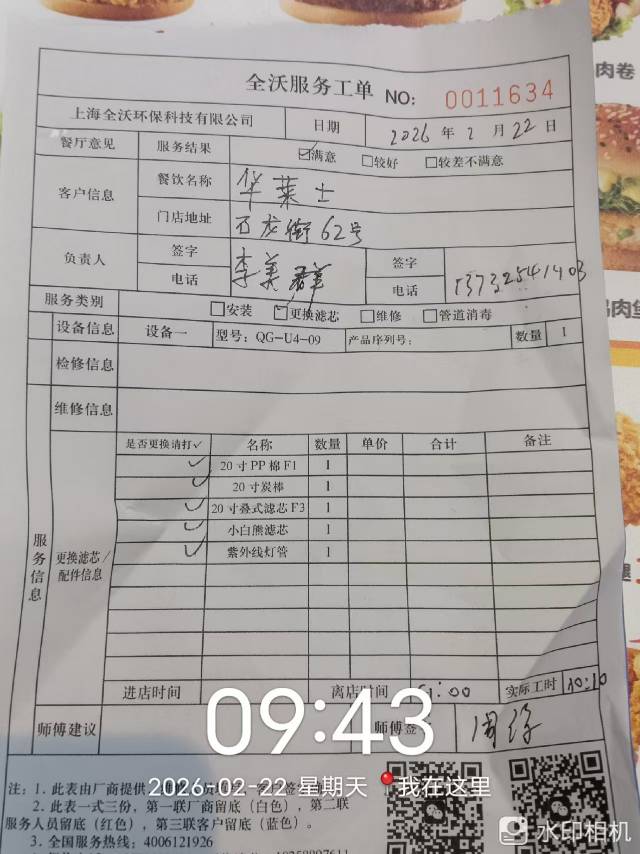 肉卷
全沃服务工单 NO: 0011634
上海全沃环保科技有限公司 日期 2026 年 2 月 22 日
餐厅意见 服务结果 ☑满意 □较好 □较差不满意
客户信息 餐饮名称 华莱士
门店地址 石龙街62号
负责人 签字 李美群 签字
电话 电话 13732541403
服务类别 □安装 ☑更换滤芯 □维修 □管道消毒
设备信息 设备一 型号: QG-U4-09 产品序列号: 数量 1
检修信息
维修信息
服务信息
更换滤芯/配件信息
是否更换请打✓ 名称 数量 单价 合计 备注
✓ 20寸PP棉F1 1
✓ 20寸炭棒 1
✓ 20寸叠式滤芯F3 1
✓ 小白熊滤芯 1
✓ 紫外线灯管 1
进店时间 离店时间 :00 实际工时 10:10
师傅建议 师傅签 周
09:43
2026-02-22 星期天 我在这里
注: 1. 此表由厂商提供
2. 此表一式三份，第一联厂商留底（白色），第二联
服务人员留底（红色），第三联客户留底（蓝色）。
3. 全国服务热线: 4006121926
水印相机